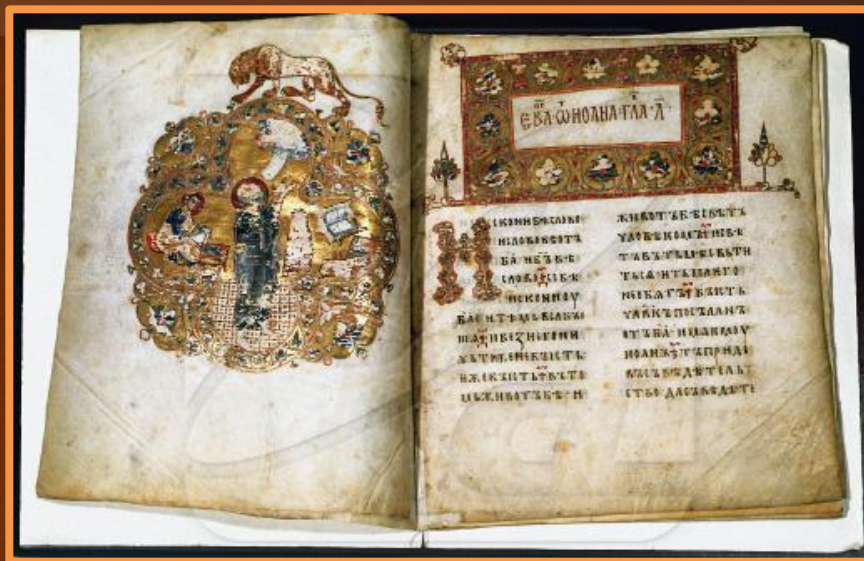 ЕВА·ѾИОАНА·ГЛА·А҃·
ИСКОНИБѢСЛОВО
ИСЛОВОБѢОТЪ
БА҃·ИБЪ҃БѢ
СЛОВО·СЕБѢ
ИСКОНИОУ
БА҃·ИТѢМЬВЬСꙖБЫ
ШѦ·ИБЕЗНЕГОНИ
ЧЬТОЖЕНЕБЫСТЬ·
ѤЖЕБЫСТЬ·ВЪТО
МЬЖИВОТЪБѢ·И
ЖИВОТЪБѢСВѢТЪ
ЧЛОВѢКОМЪ·ИСВѢ
ТЪВЪТЬМѢСВЬТИ
ТЬСѦ·ИТЬМАѤГО
НЕОБѦТЪ·БЫСТЬ
ЧЛ҃КЪПОСЪЛАНЪ
ОТЪБА҃·ИМѦѤМОУ
ИОАНЪ·ТЪПРИДЕ
ВЪСЪВѢДѢТЕЛЬ
СТВО·ДАСЪВѢДѢТЕ